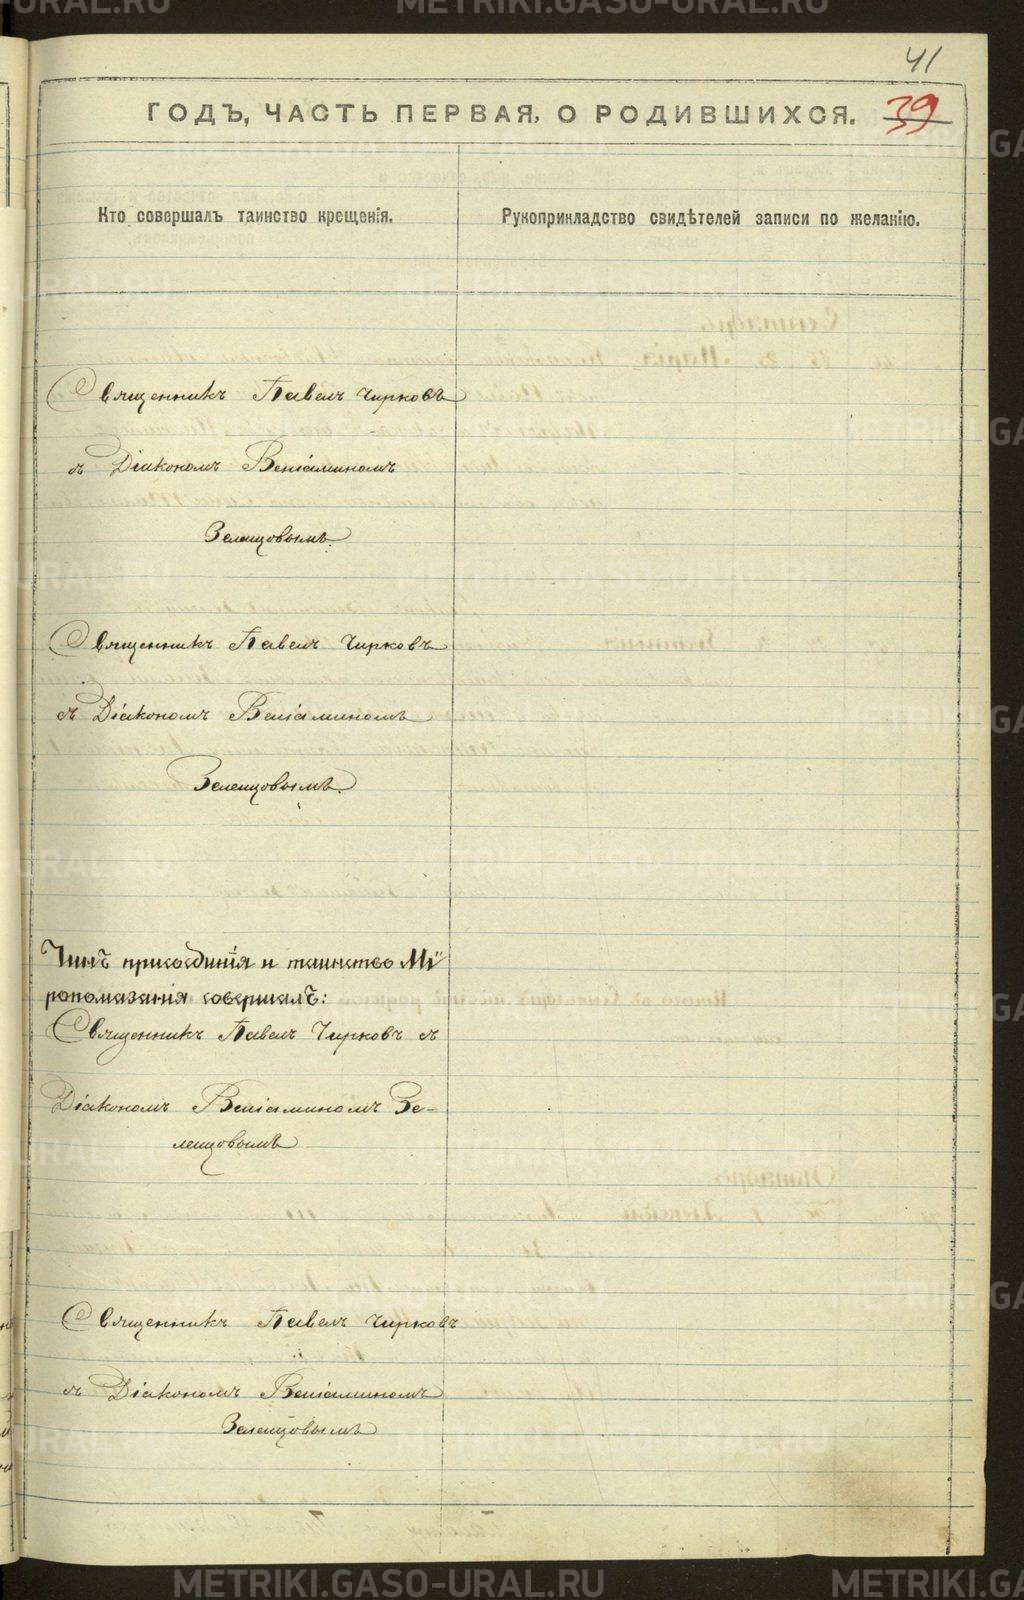 41
ГОДЪ, ЧАСТЬ ПЕРВАЯ, О РОДИВШИХСЯ.
39
Кто совершалъ таинство крещенія.
Рукоприкладство свидѣтелей записи по желанію.
Священникъ Павелъ Чирковъ
съ Діакономъ Веніаминомъ
Зеленцовымъ.
Священникъ Павелъ Чирковъ
съ Діакономъ Веніаминомъ
Зеленцовымъ.
Чинъ присоединія и таинство Мѵ
ропомазанія совершалъ:
Священникъ Павелъ Чирковъ съ
Діакономъ Веніаминомъ Зе-
ленцовымъ
Священникъ Павелъ Чирковъ
съ Діакономъ Веніаминомъ
Зеленцовымъ
METRIKI.GASO-URAL.RU